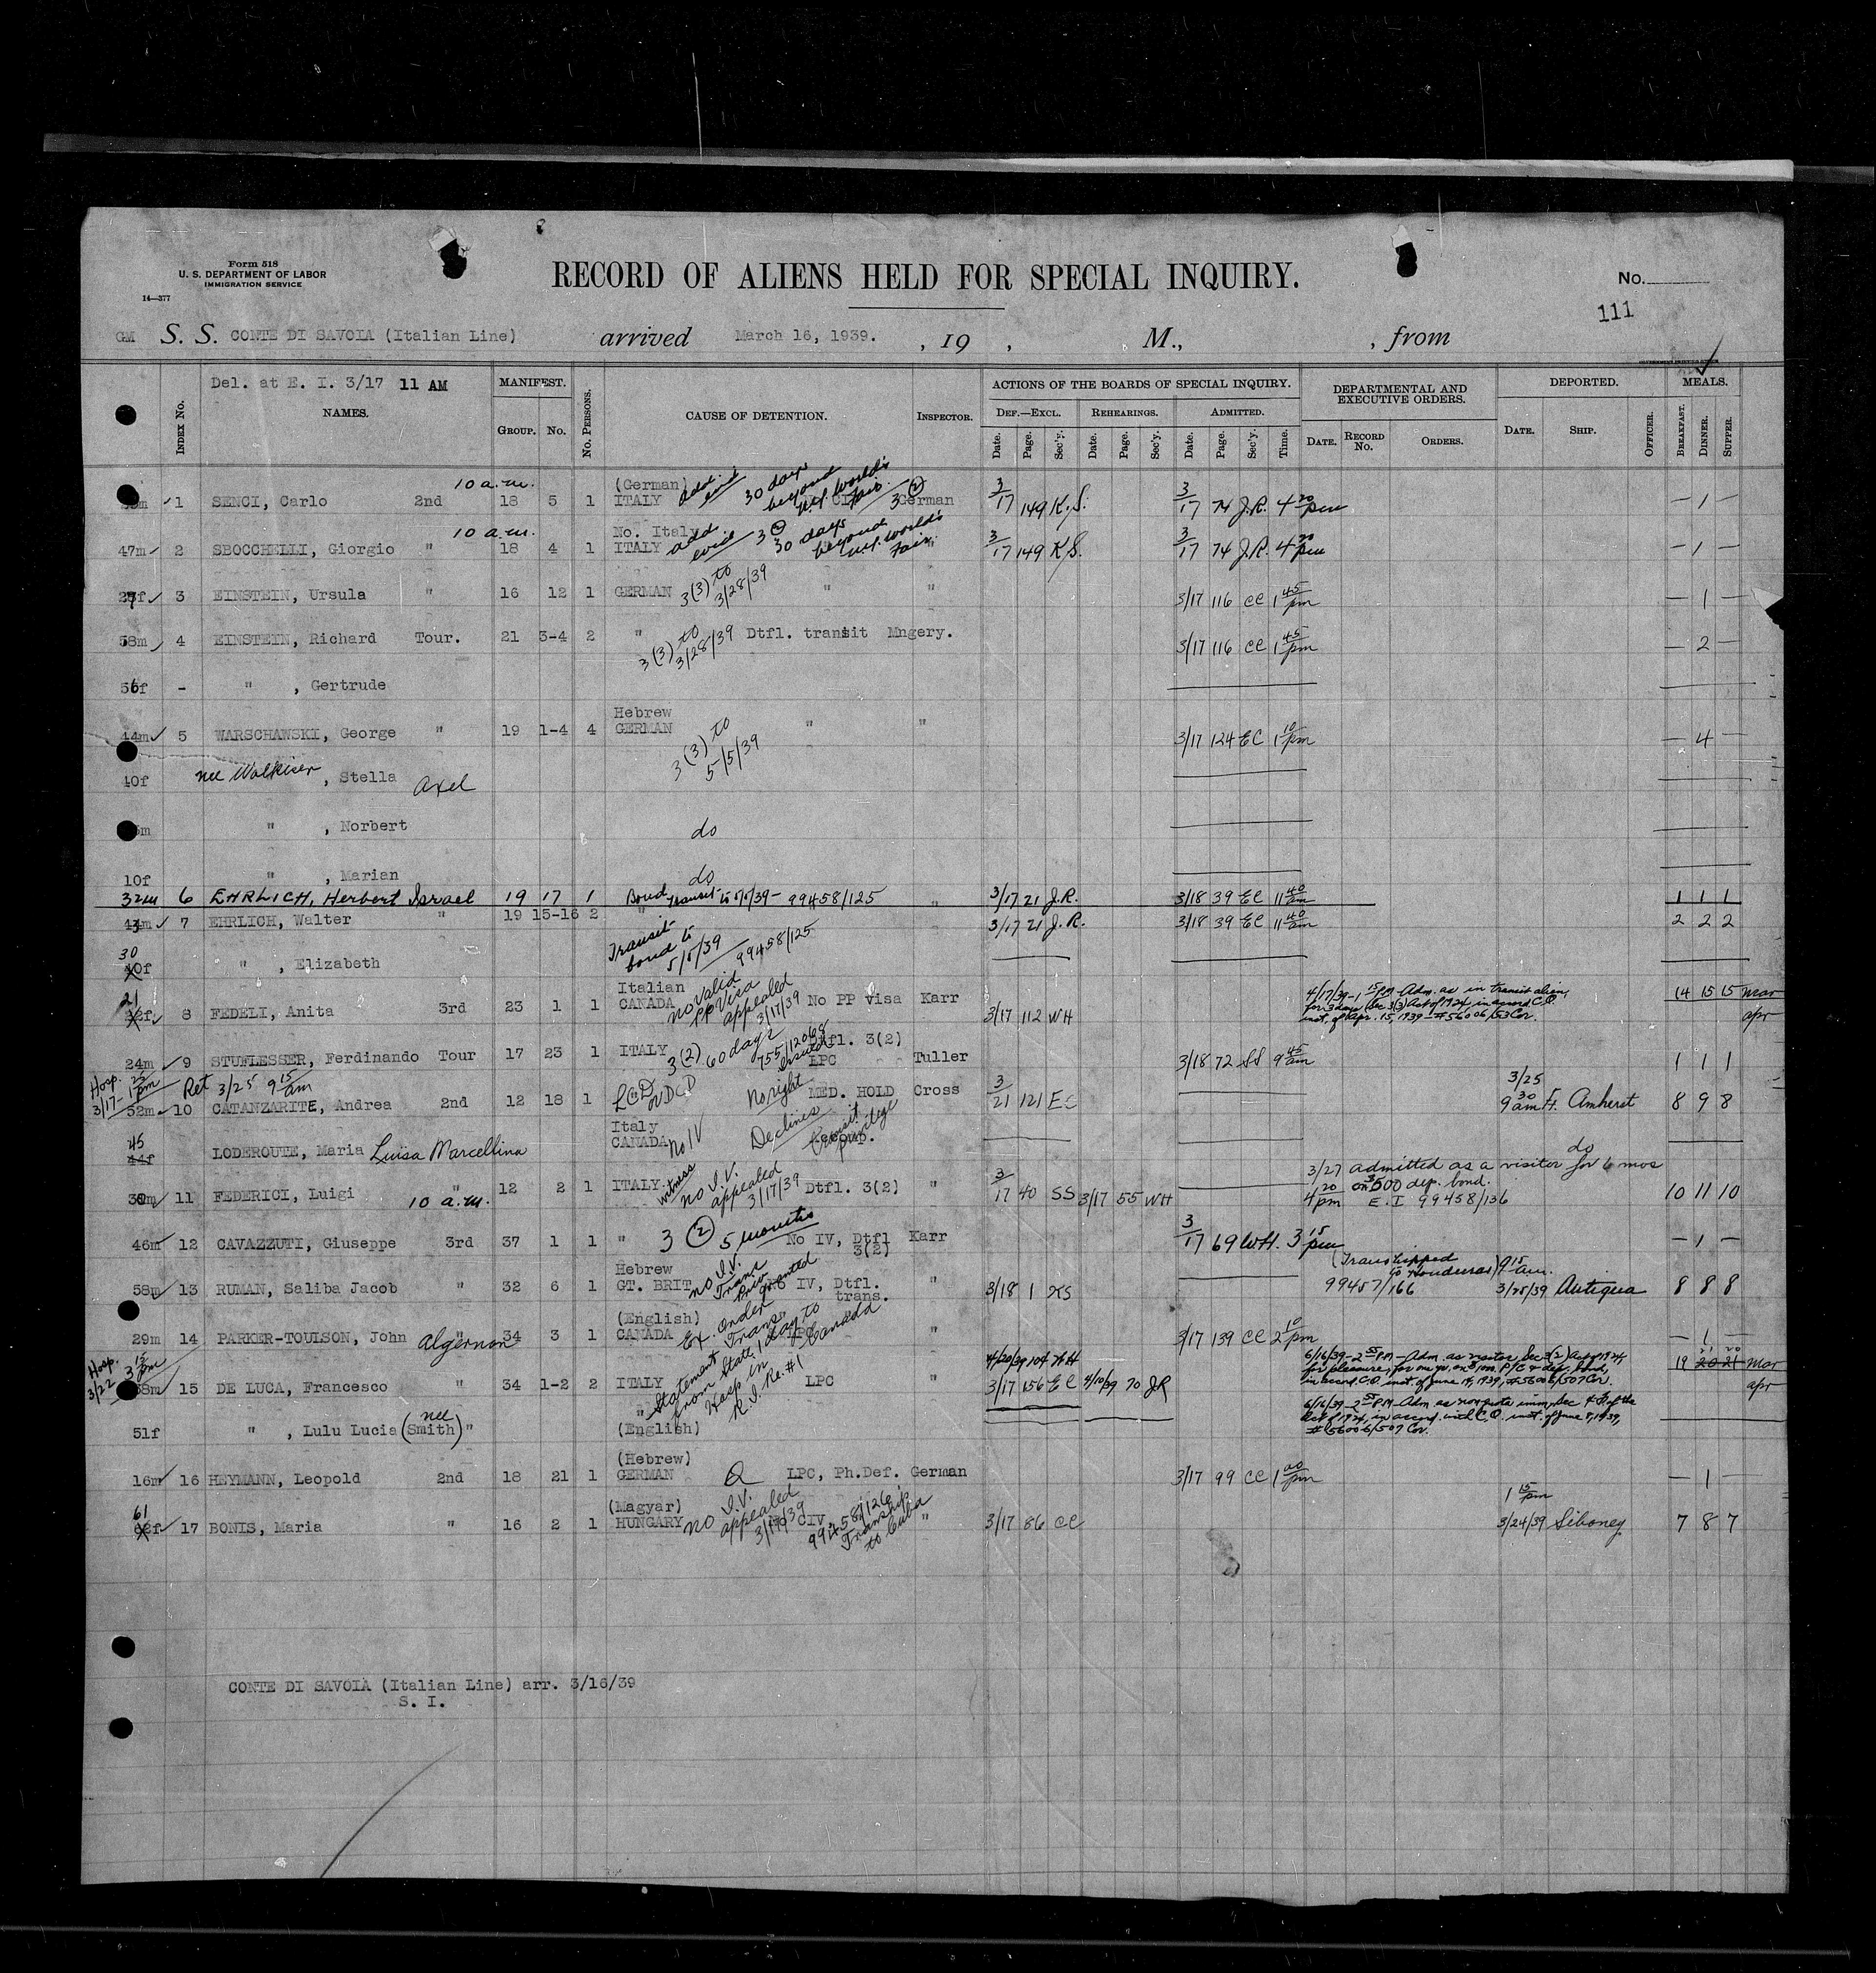 Form 518
U. S. DEPARTMENT OF LABOR
IMMIGRATION SERVICE
14—377
RECORD OF ALIENS HELD FOR SPECIAL INQUIRY.
No.
111
GM S. S. CONTE DI SAVOIA (Italian Line) arrived March 16, 1939. , 19 , M., , from
Del. at E. I. 3/17 11 AM
INDEX No. NAMES. MANIFEST. GROUP. No. No. PERSONS. CAUSE OF DETENTION. INSPECTOR.
ACTIONS OF THE BOARDS OF SPECIAL INQUIRY.
DEF.—EXCL. REHEARINGS. ADMITTED.
Date. Page. Sec'y. Date. Page. Sec'y. Date. Page. Sec'y. Time.
DEPARTMENTAL AND EXECUTIVE ORDERS.
DATE. RECORD No. ORDERS.
DEPORTED.
DATE. SHIP. OFFICER.
MEALS.
BREAKFAST. DINNER. SUPPER.
10 a.m. (German)
1 SENCI, Carlo 2nd 18 5 1 ITALY add evid 30 days beyond N.Y. World's Fair 3 (2) German 3/17 149 K.S. 3/17 74 J.R. 4 20 pm — 1 —
10 a.m. No. Italy
47m 2 SBOCCHELLI, Giorgio " 18 4 1 ITALY add evid 3 (2) 30 days beyond N.Y. World's Fair " 3/17 149 K.S. 3/17 74 J.R. 4 20 pm — 1 —
3 EINSTEIN, Ursula " 16 12 1 GERMAN 3(3) to 3/28/39 " " 3/17 116 CC 1 45 pm — 1 —
58m 4 EINSTEIN, Richard Tour. 21 3-4 2 " 3(3) to 3/28/39 Dtfl. transit Mngery. 3/17 116 CC 1 45 pm — 2 —
- " , Gertrude
Hebrew
44m 5 WARSCHAWSKI, George " 19 1-4 4 GERMAN 3(3) to 5/5/39 " " 3/17 124 EC 1 10 pm — 4 —
40f nee Walkiser , Stella Axel
" , Norbert do
10f " , Marian do
32m 6 EHRLICH, Herbert Israel 19 17 1 Bond transit to 5/5/39 - 99458/125 " 3/17 21 J.R. 3/18 39 EC 11 40 am 1 1 1
7 EHRLICH, Walter " 19 15-16 2 " 3/17 21 J.R. 3/18 39 EC 11 40 am 2 2 2
30 " , Elizabeth Transit bond to 5/5/39 99458/125
Italian
21 8 FEDELI, Anita 3rd 23 1 1 CANADA No valid PP Visa appealed 3/17/39 No PP visa Karr 3/17 112 WH 4/17/39-1 15 PM-Adm. as in transit alien, for 3 days Sec 3(3) Act of 1924 in accord C.O. inst. of Apr. 15, 1939-#56006/53 Cor. 14 15 15 Mar Apr
24m 9 STUFLESSER, Ferdinando Tour 17 23 1 ITALY 3(2) 60 days 755/12068 issued Dtfl. 3(2) LPC Tuller 3/18 72 SS 9 45 am 1 1 1
Hosp. 3/17- Ret 3/25 9 15 am
52m 10 CATANZARITE, Andrea 2nd 12 18 1 No right MED. HOLD Cross 3/21 121 EC 3/25 9 30 am Ft. Amherst 8 9 8
Italy
45 44f LODEROUTE, Maria Luisa Marcellina CANADA No IV Declines transit privilege do
11 FEDERICI, Luigi " 10 a.m. 12 2 1 ITALY witness no I.V. appealed 3/17/39 Dtfl. 3(2) " 3/17 40 SS 3/17 55 WH 3/27 4 20 pm admitted as a visitor for 6 mos on $500 dep. bond. E.I 99458/136 10 11 10
46m 12 CAVAZZUTI, Giuseppe 3rd 37 1 1 " 3 (2) 5 months No IV, Dtfl 3(2) Karr 3/17 69 W.H. 3 15 pm — 1 —
Hebrew
58m 13 RUMAN, Saliba Jacob " 32 6 1 GT. BRIT no I.V. Trans Priv. granted IV, Dtfl. trans. " 3/18 1 KS (Transhipped to Honduras) 99457/166 9 15 am. 3/25/39 Antigua 8 8 8
(English)
29m 14 PARKER-TOULSON, John Algernon " 34 3 1 CANADA Ex. Order Trans 1 day to Canada " 3/17 139 CC 2 10 pm — 1 —
Hosp. 3/22 3 15 pm
15 DE LUCA, Francesco " 34 1-2 2 ITALY Statement from State Hosp in R.I. Re: #1 LPC " 4/20/39 104 3/17 156 EC 4/10/39 70 J.R 6/16/39-2 55 PM-Adm. as visitor Sec 3(2) Act of 1924, for pleasure, for one yr. on P/C & dep. bond, in accord. C.O. inst of June 14, 1939, #56006/507 Cor. 19 20 21 Mar Apr
51f " , Lulu Lucia (nee Smith) " " (English) 6/16/39-2 55 PM-Adm as non quota imm. Sec 4 of the Act of 1924, in accord. with C.O. inst. of June 8, 1939, #56006/507 Cor.
(Hebrew)
16m 16 HEYMANN, Leopold 2nd 18 21 1 GERMAN LPC, Ph.Def. German 3/17 99 CC 1 00 pm — 1 —
(Magyar)
61 62f 17 BONIS, Maria " 16 2 1 HUNGARY no I.V. appealed 3/17/39 CIV 99458/126 Tranship to Cuba " 3/17 86 CC 1 15 pm 3/24/39 Siboney 7 8 7
CONTE DI SAVOIA (Italian Line) arr. 3/16/39
S. I.